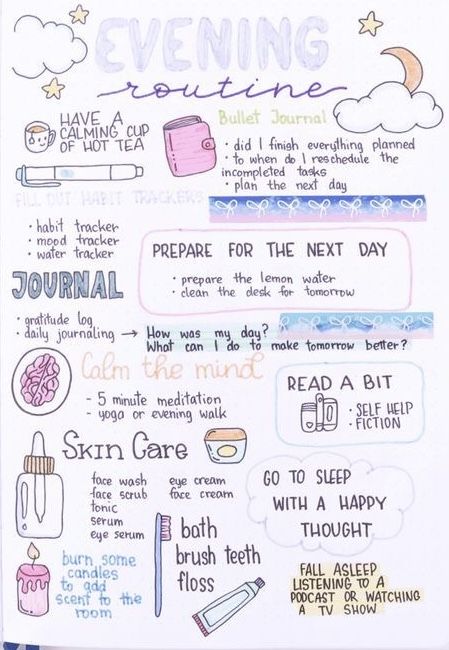 EVENING
routine
HAVE A
CALMING CUP
OF HOT TEA
Bullet Journal
· did I finish everything planned
· to when do I reschedule the
incompleted tasks
· plan the next day
FILL OUT HABIT TRACKERS
· habit tracker
· mood tracker
· water tracker
PREPARE FOR THE NEXT DAY
· prepare the lemon water
· clean the desk for tomorrow
JOURNAL
· gratitude log
· daily journaling → How was my day?
What can I do to make tomorrow better?
Calm the mind
- 5 minute meditation
- yoga or evening walk
READ A BIT
· SELF HELP
· FICTION
Skin Care
face wash
face scrub
tonic
serum
eye serum
eye cream
face cream
GO TO SLEEP
WITH A HAPPY
THOUGHT
bath
brush teeth
floss
burn some
candles
to add
scent to the
room
FALL ASLEEP
LISTENING TO A
PODCAST OR WATCHING
A TV SHOW